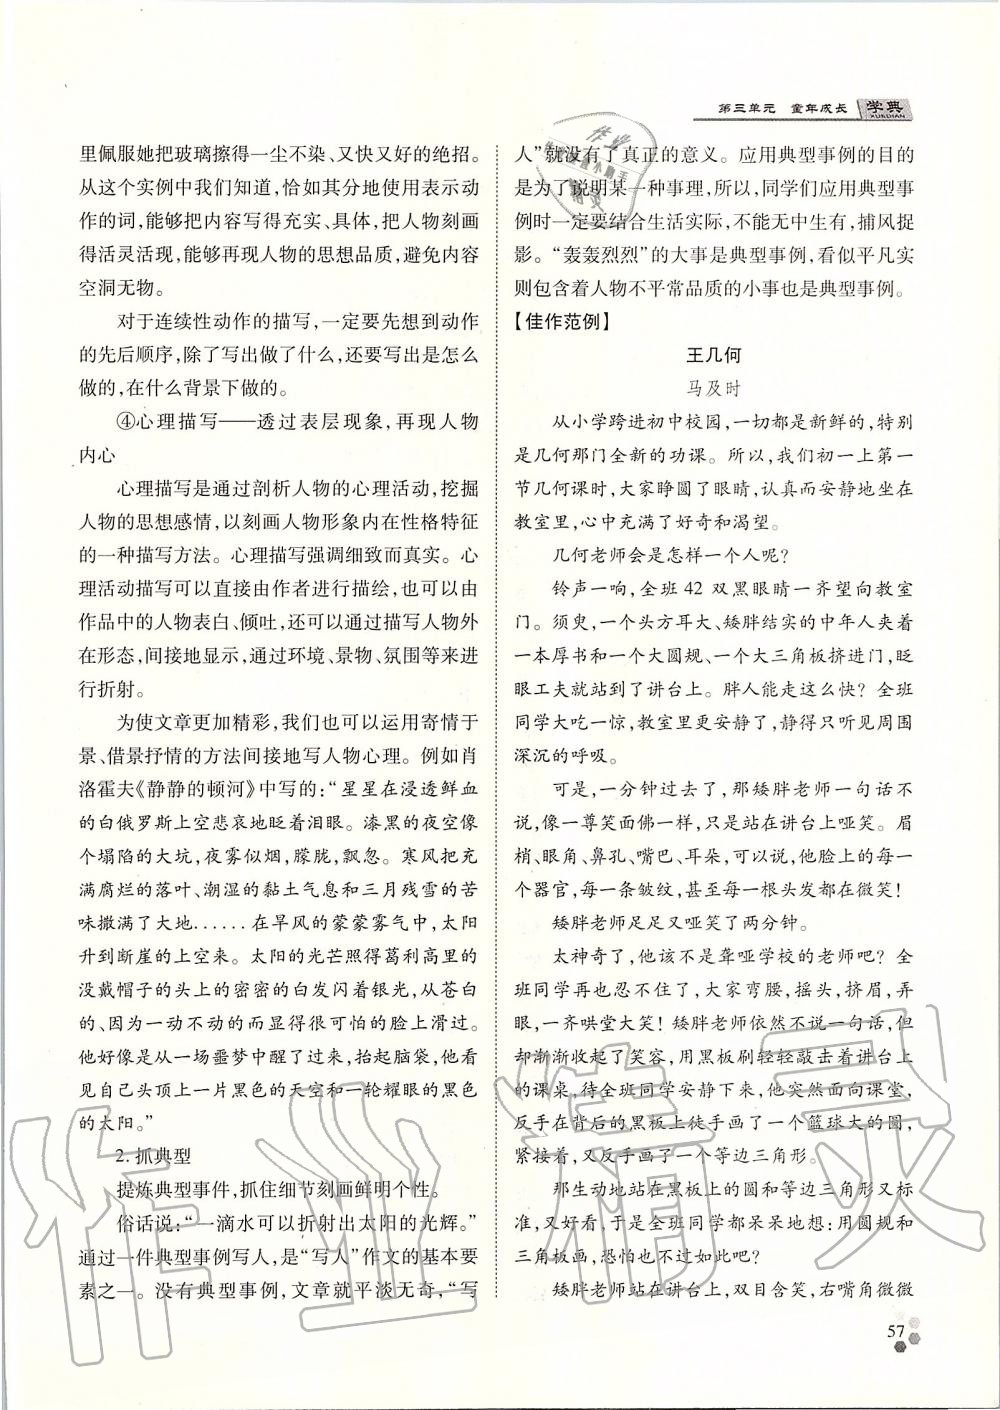 第三单元 童年成长 学典
XUEDIAN
里佩服她把玻璃擦得一尘不染、又快又好的绝招。
从这个实例中我们知道，恰如其分地使用表示动
作的词，能够把内容写得充实、具体，把人物刻画
得活灵活现，能够再现人物的思想品质，避免内容
空洞无物。
对于连续性动作的描写，一定要先想到动作
的先后顺序，除了写出做了什么，还要写出是怎么
做的，在什么背景下做的。
④心理描写——透过表层现象，再现人物
内心
心理描写是通过剖析人物的心理活动，挖掘
人物的思想感情，以刻画人物形象内在性格特征
的一种描写方法。心理描写强调细致而真实。心
理活动描写可以直接由作者进行描绘，也可以由
作品中的人物表白、倾吐，还可以通过描写人物外
在形态，间接地描写，通过环境、景物、氛围等来进
行折射。
为使文章更加精彩，我们也可以运用寄情于
景、借景抒情的方法间接地写人物心理。例如肖
洛霍夫《静静的顿河》中写的：“星星在浸透鲜血
的白俄罗斯上空悲哀地眨着泪眼。漆黑的夜空像
个塌陷的大坑，夜雾似烟，朦胧，飘忽。寒风把充
满腐烂的落叶、潮湿的黏土气息和三月残雪的苦
味撒满了大地......在旱风的蒙蒙雾气中，太阳
升到断崖的上空来。太阳的光芒照得葛利高里的
没戴帽子的头上的密密的白发闪着银光，从苍白
的、因为一动不动的而显得很可怕的脸上滑过。
他好像是从一场噩梦中醒了过来，抬起脑袋，他看
见自己头顶上一片黑色的天空和一轮耀眼的黑色
的太阳。”
2. 抓典型
提炼典型事件，抓住细节刻画鲜明个性。
俗话说：“一滴水可以折射出太阳的光辉。”
通过一件典型事例写人，是“写人”作文的基本要
素之一。没有典型事例，文章就平淡无奇，“写
人”就没有了真正的意义。应用典型事例的目的
是为了说明某一种事理，所以，同学们应用典型事
例时一定要结合生活实际，不能无中生有，捕风捉
影。“轰轰烈烈”的大事是典型事例，看似平凡实
则包含着人物不平常品质的小事也是典型事例。
【佳作范例】
王几何
马及时
从小学跨进初中校园，一切都是新鲜的，特别
是几何那门全新的功课。所以，我们初一上第一
节几何课时，大家睁圆了眼睛，认真而安静地坐在
教室里，心中充满了好奇和渴望。
几何老师会是怎样一个人呢？
铃声一响，全班 42 双黑眼睛一齐望向教室
门。须臾，一个头方耳大、矮胖结实的中年人夹着
一本厚书和一个大圆规、一个大三角板挤进门，眨
眼工夫就站到了讲台上。胖人能走这么快？全班
同学大吃一惊，教室里更安静了，静得只听见周围
深沉的呼吸。
可是，一分钟过去了，那矮胖老师一句话不
说，像一尊笑面佛一样，只是站在讲台上哑笑。眉
梢、眼角、鼻孔、嘴巴、耳朵，可以说，他脸上的每一
个器官，每一条皱纹，甚至每一根头发都在微笑！
矮胖老师足足又哑笑了两分钟。
太神奇了，他该不是聋哑学校的老师吧？全
班同学再也忍不住了，大家弯腰，摇头，挤眉，弄
眼，一齐哄堂大笑！矮胖老师依然不说一句话，但
却渐渐收起了笑容，用黑板刷轻轻敲击着讲台上
的课桌，待全班同学安静下来，他突然面向课堂，
反手在背后的黑板上徒手画了一个篮球大的圆，
紧接着，又反手画了一个等边三角形。
那生动地站在黑板上的圆和等边三角形又标
准，又好看，于是全班同学都呆呆地想：用圆规和
三角板画，恐怕也不过如此吧？
矮胖老师站在讲台上，双目含笑，右嘴角微微
57
作业精灵